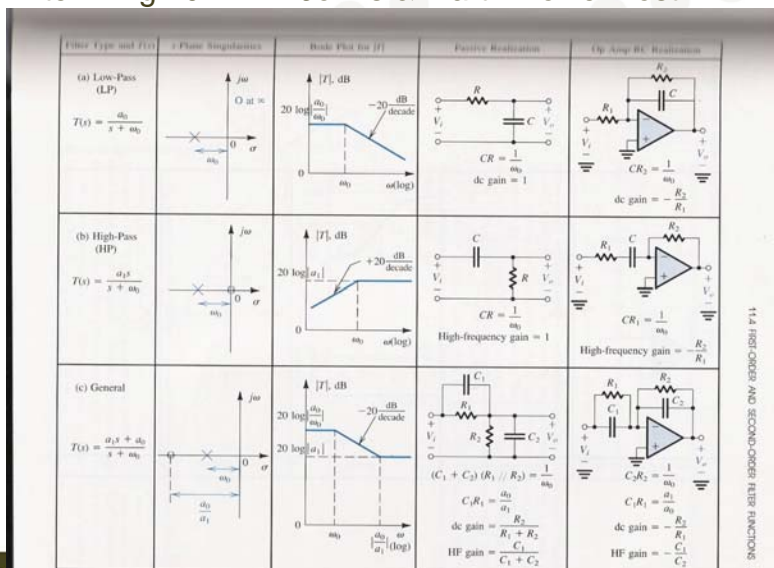 Filter Type and T(s)
s-Plane Singularities
Bode Plot for |T|
Passive Realization
Op Amp-RC Realization
(a) Low-Pass
(LP)
T(s) = a₀ / (s + ω₀)
jω
O at ∞
0
σ
ω₀
|T|, dB
20 log |a₀/ω₀|
−20 dB/decade
0
ω₀
ω(log)
R
+
Vᵢ
−
C
+
Vₒ
−
CR = 1/ω₀
dc gain = 1
R₂
C
R₁
+
Vᵢ
−
−
+
+
Vₒ
−
CR₂ = 1/ω₀
dc gain = −R₂/R₁
(b) High-Pass
(HP)
T(s) = a₁s / (s + ω₀)
jω
0
σ
ω₀
|T|, dB
20 log |a₁|
+20 dB/decade
0
ω₀
ω(log)
C
+
Vᵢ
−
R
+
Vₒ
−
CR = 1/ω₀
High-frequency gain = 1
R₂
R₁
C
+
Vᵢ
−
−
+
+
Vₒ
−
CR₁ = 1/ω₀
High-frequency gain = −R₂/R₁
(c) General
T(s) = (a₁s + a₀) / (s + ω₀)
jω
0
σ
ω₀
a₀/a₁
|T|, dB
20 log |a₀/ω₀|
−20 dB/decade
20 log |a₁|
0
ω₀
|a₀/a₁|
ω
(log)
C₁
R₁
+
Vᵢ
−
R₂
C₂
+
Vₒ
−
(C₁ + C₂) (R₁ // R₂) = 1/ω₀
C₁R₁ = a₀/a₁
dc gain = R₂ / (R₁ + R₂)
HF gain = C₁ / (C₁ + C₂)
R₁
R₂
C₁
C₂
+
Vᵢ
−
−
+
+
Vₒ
−
C₂R₂ = 1/ω₀
C₁R₁ = a₁/a₀
dc gain = −R₂/R₁
HF gain = −C₁/C₂
11.4 FIRST-ORDER AND SECOND-ORDER FILTER FUNCTIONS